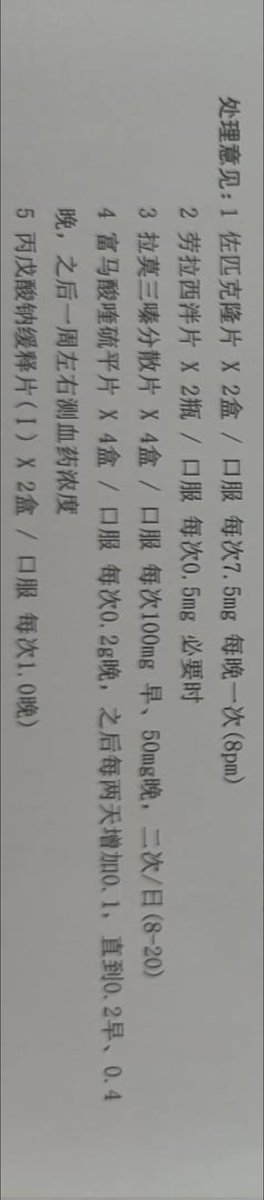 处理意见:1 佐匹克隆片 X 2盒 / 口服 每次7.5mg 每晚一次(8pm)
2 劳拉西泮片 X 2瓶 / 口服 每次0.5mg 必要时
3 拉莫三嗪分散片 X 4盒 / 口服 每次100mg 早、50mg晚, 二次/日(8-20)
4 富马酸喹硫平片 X 4盒 / 口服 每次0.2g晚, 之后每两天增加0.1, 直到0.2早、0.4
晚, 之后一周左右测血药浓度
5 丙戊酸钠缓释片(I) X 2盒 / 口服 每次1.0晚)